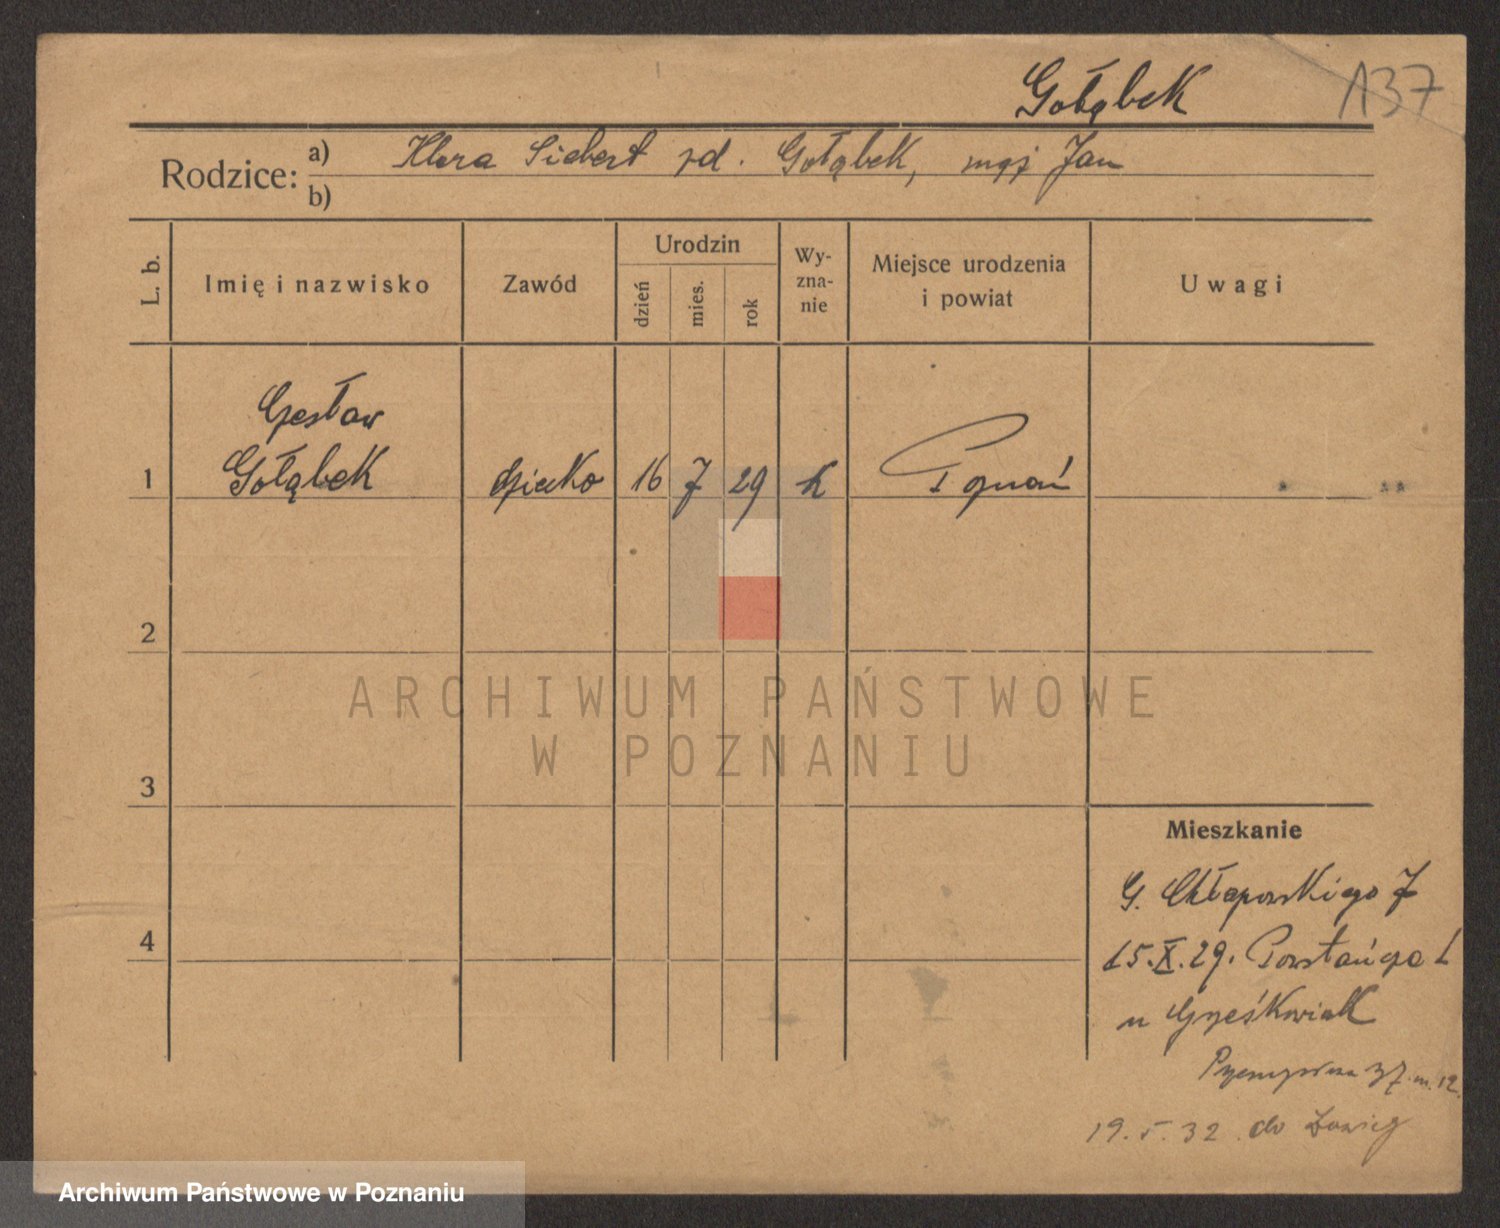 Gołąbek 137
Rodzice: a) Klara Siebert zd. Gołąbek, mąż Jan
b)
L. b. Imię i nazwisko Zawód Urodzin dzień mies. rok Wyznanie Miejsce urodzenia i powiat Uwagi
Czesław
1 Gołąbek dziecko 16 7 29 k Poznań
2
ARCHIWUM PAŃSTWOWE
W POZNANIU
3
Mieszkanie
G. Chłapowskiego 7
4
15.X.29. Powstańcza 1
u Grześkowiak
Przemysłowa 37 m. 12.
19.5.32 do
Archiwum Państwowe w Poznaniu